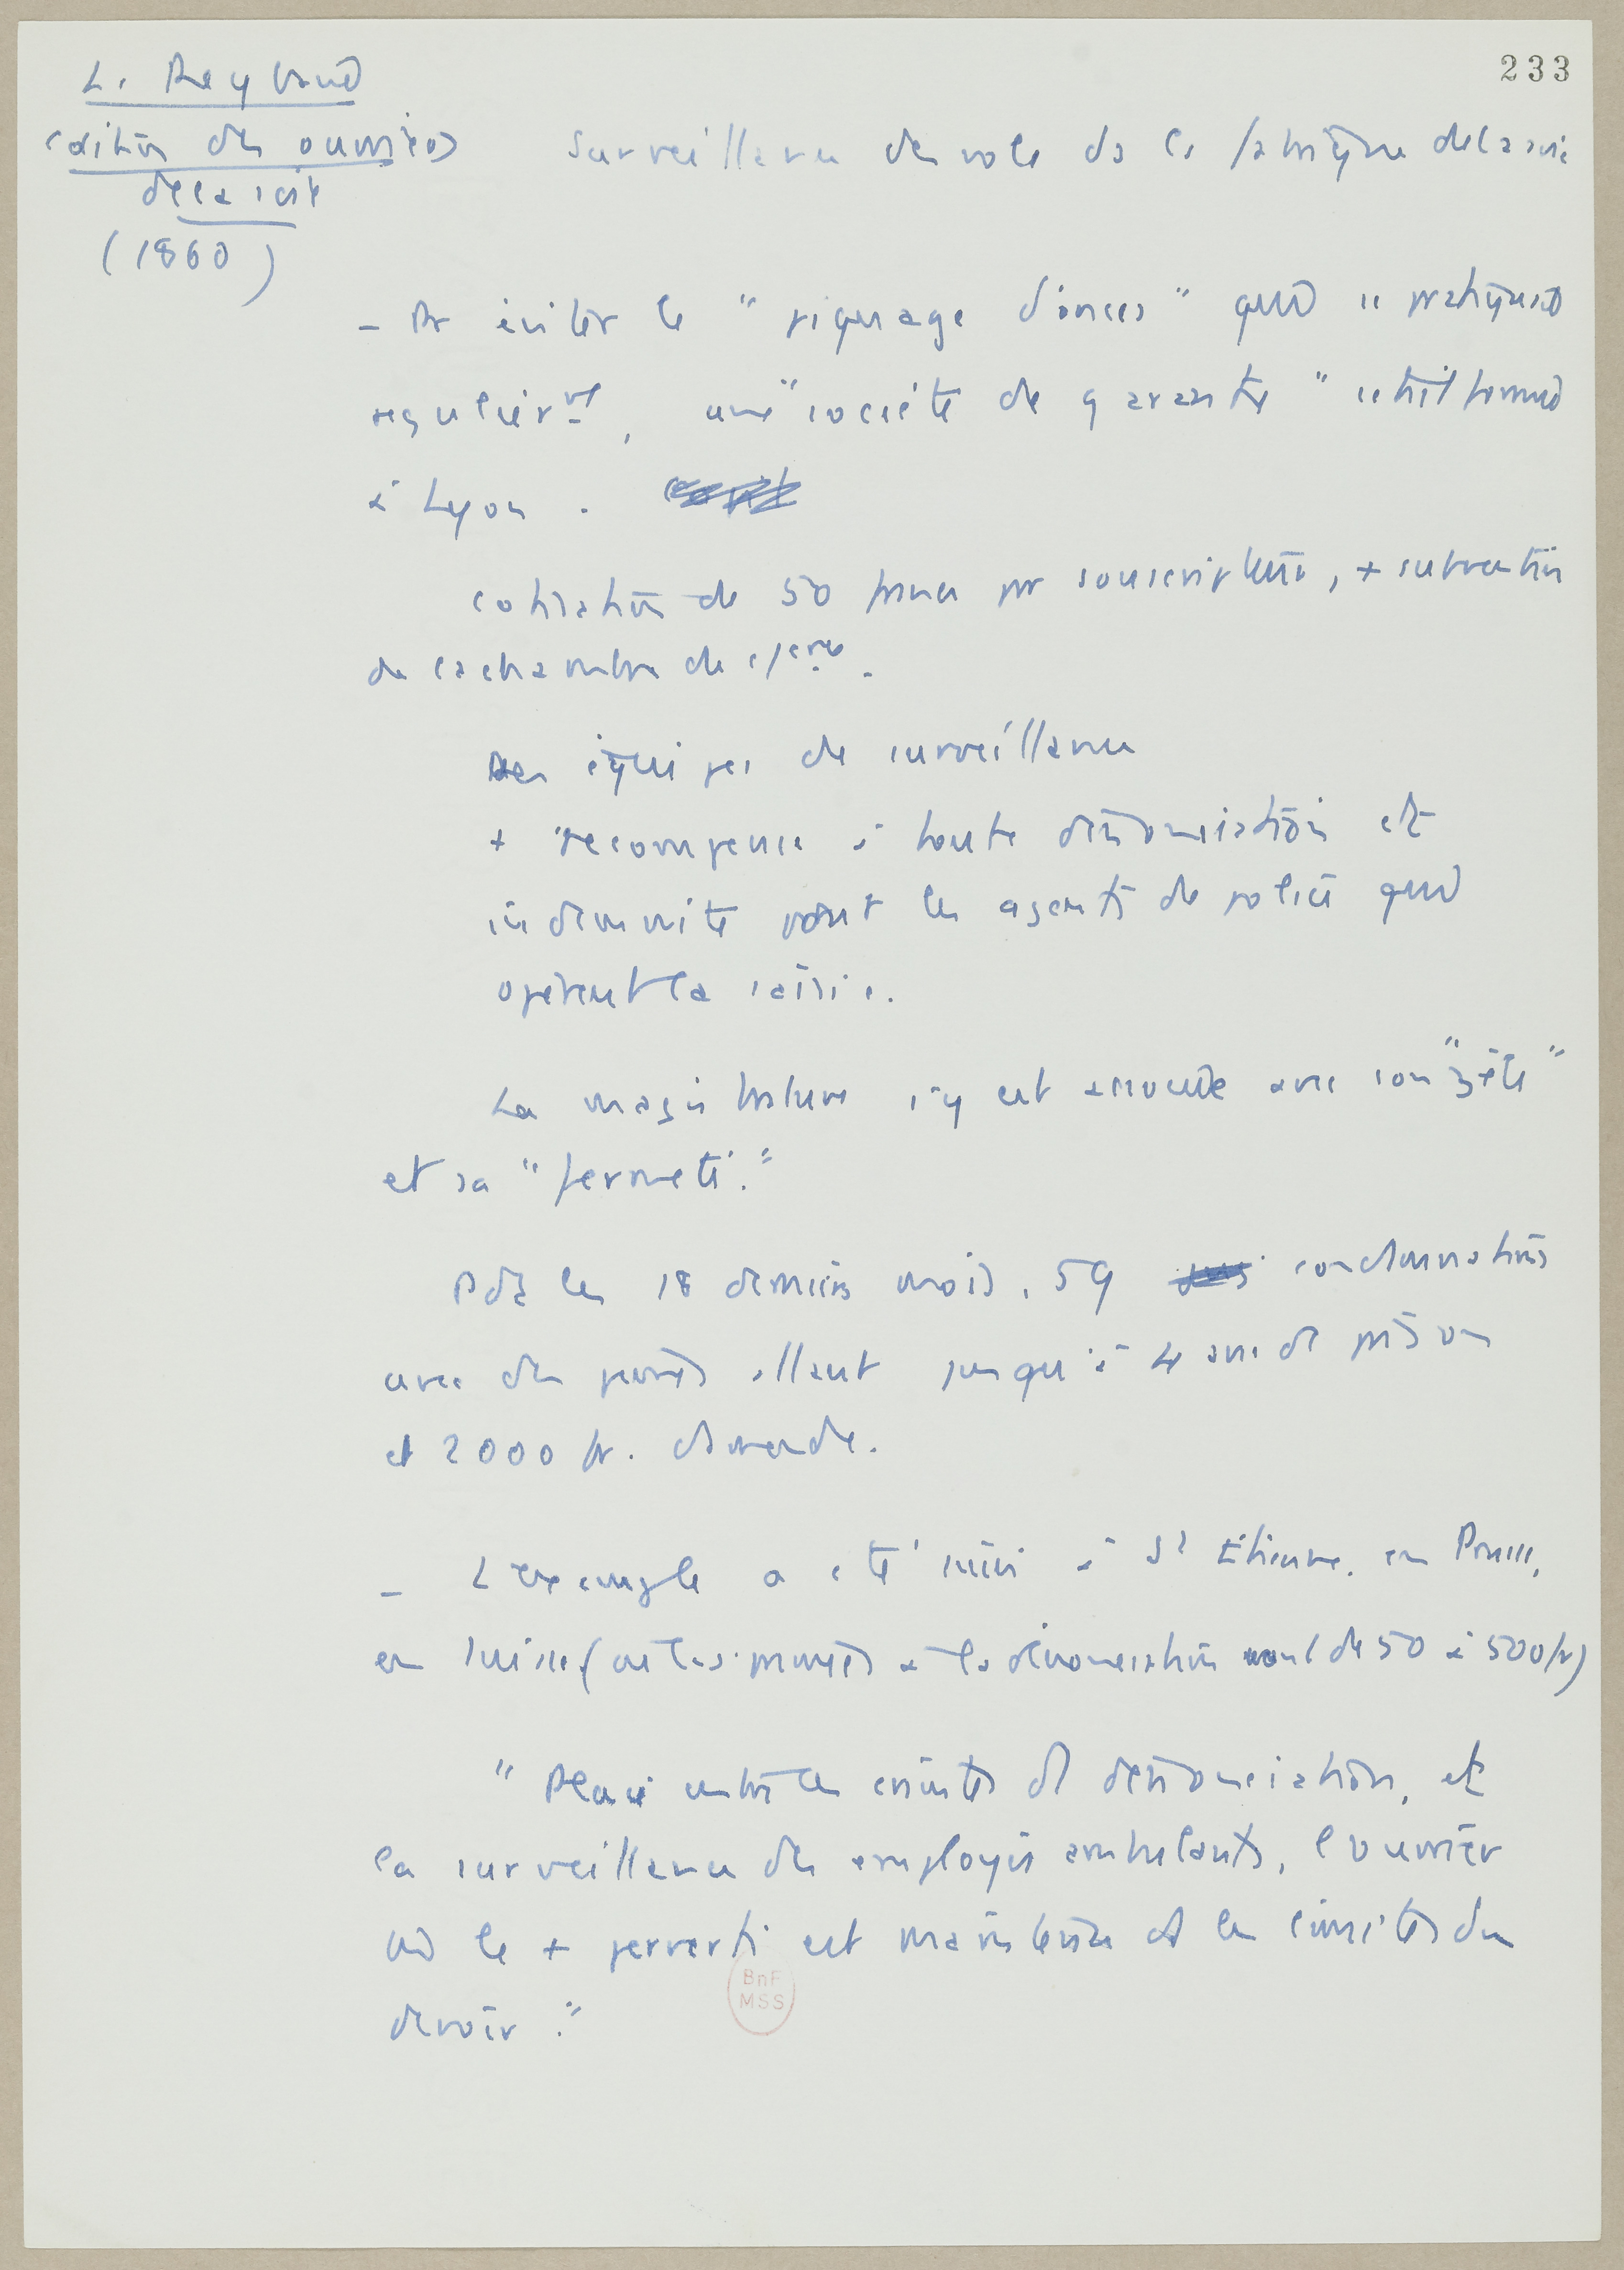 233
L. Reybaud
Cdition des ouvriers
de la soie
(1860)
Surveillance des vols ds la fabrique de la soie
- Pr éviter le "piquage d'onces" qui se pratiquait
régulièrmt, une "société de garantie" s'était formée
à Lyon.
cotisation de 50 francs pr souscripteurs, + subvention
de la chambre de cerce.
Des équipes de surveillance
+ "récompense à toute dénonciation et
indemnité pour les agents de police qui
opèrent la saisie.
La magistrature s'y est associée avec son "zèle"
et sa "fermeté."
Pdt les 18 derniers mois, 59 condamnations
avec des peines allant jusqu'à 4 ans de prison
et 2000 fr. d'amende.
- L'exemple a été suivi à St Etienne, en Prusse,
en Suisse (où les primes à la dénonciation vont de 50 à 500 fr)
"Placé entre les craintes de dénonciation, et
la surveillance des employés ambulants, l'ouvrier
le + perverti est maintenu ds les limites du
devoir."
BnF
MSS